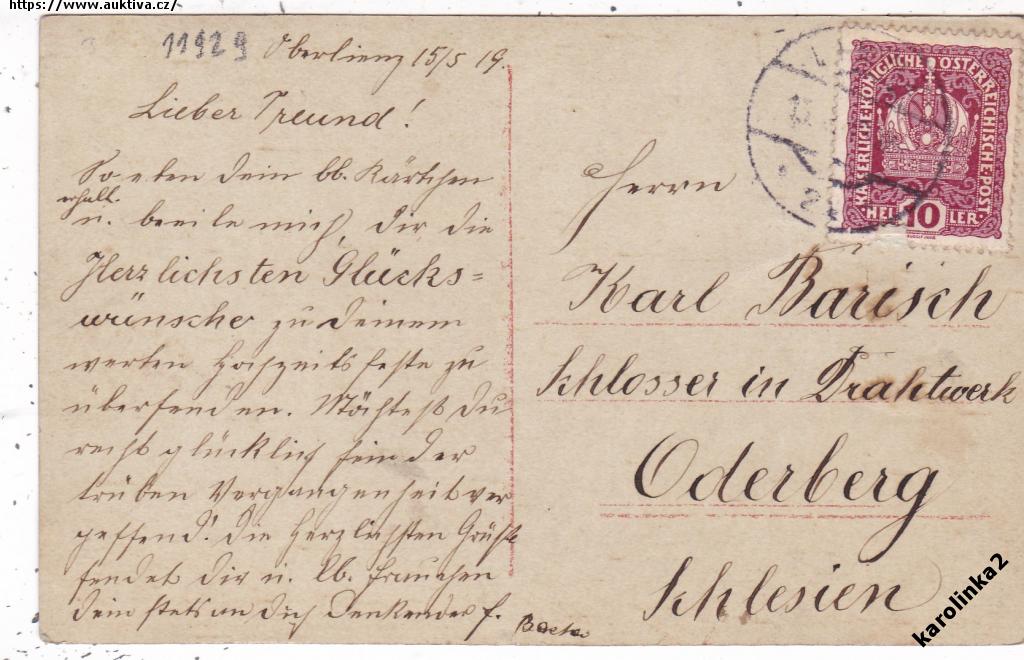 https://www.auktiva.cz/
11929
Oberlienz 15/5 19.
Lieber Freund!
So eben dein lb. Kärtchen
erhalt.
u. beeile mich, dir die
Herzlichsten Glücks=
wünsche zu deinem
werten Hochzeitsfeste zu
übersenden. Möchtest du
recht glücklich sein der
trüben Vergangenheit ver
gessend! Die herzlichsten Grüße
sendet dir u. lb. Frauchen
dein stets an dich denkender F.
KAISERLICHE KÖNIGLICHE ÖSTERREICHISCHE POST
HELLER
10
Herrn
Karl Barisch
Schlosser in Drahtwerk
Oderberg
Schlesien
karolinka2